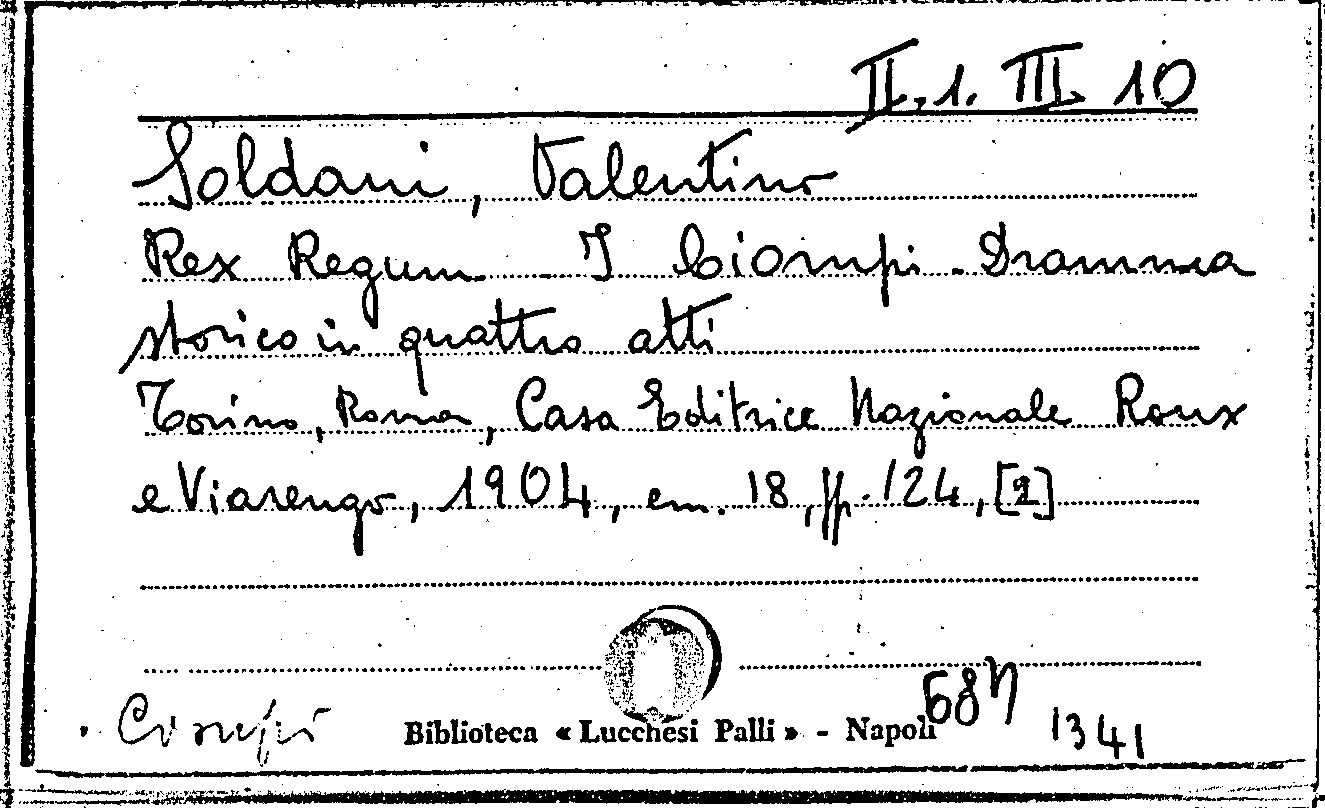 II.1.III 10
Soldani, Valentino
Rex Regum - I Ciompi - Dramma
storico in quattro atti
Torino, Roma, Casa Editrice Nazionale Roux
e Viarengo, 1904, cm. 18, pp. 124, [2]
Ciompi
Biblioteca « Lucchesi Palli » - Napoli
1341